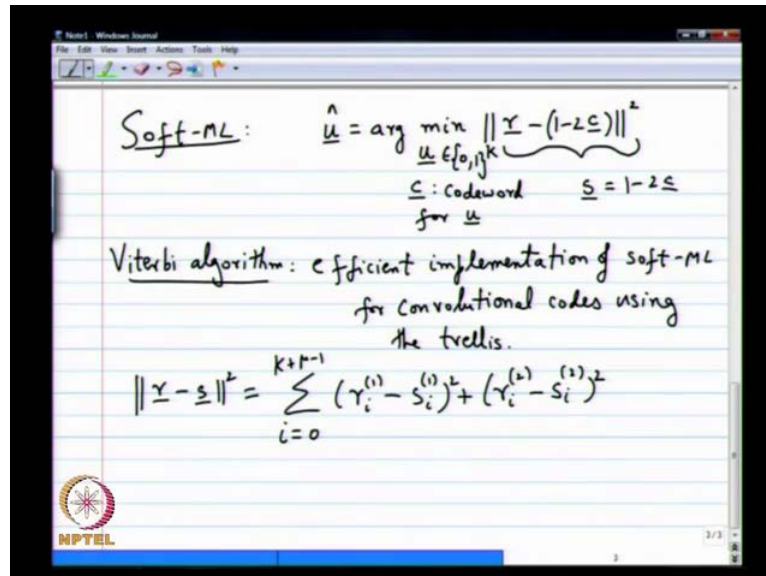 Note1 - Windows Journal
File Edit View Insert Actions Tools Help
Soft-ML: û = arg min ||r - (1-2c)||²
u ∈ {0,1}^k
c : codeword s = 1-2c
for u
Viterbi algorithm: efficient implementation of soft-ML
for convolutional codes using
the trellis.
||r - s||² = Σ_{i=0}^{k+μ-1} (r_i^{(1)} - s_i^{(1)})² + (r_i^{(2)} - s_i^{(2)})²
NPTEL
3/3
3